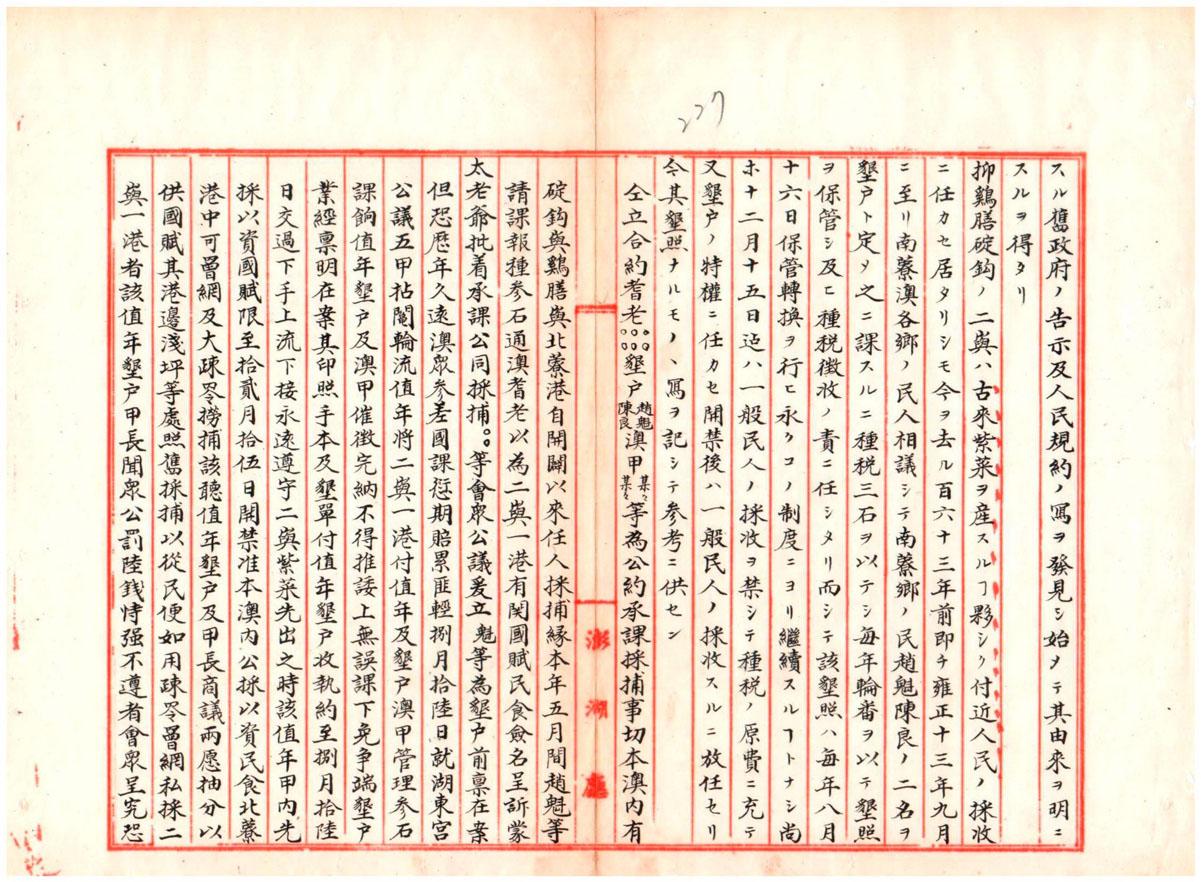 227
スル舊政府ノ告示及人民規約ノ寫ヲ發見シ始メテ其由來ヲ明ニ
スルヲ得タリ
抑鷄膳碇鈎ノ二嶼ハ古來紫菜ヲ産スルヿ夥シク付近人民ノ採收
ニ任カセ居タリシモ今ヲ去ル百六十三年前即チ雍正十三年九月
ニ至リ南藔澳各鄉ノ民人相議シテ南藔鄉ノ民趙魁陳良ノ二名ヲ
墾户ト定メ之ニ課スルニ種税三石ヲ以テシ毎年輪番ヲ以テ墾照
ヲ保管シ及ヒ種税徴收ノ責ニ任シタリ而シテ該墾照ハ毎年八月
十六日保管轉換ヲ行ヒ永クコノ制度ニヨリ繼續スルヿトナシ尚
ホ十二月十五日迠ハ一般民人ノ採收ヲ禁シテ種税ノ原費ニ充テ
又墾户ノ特權ニ任カセ開禁後ハ一般民人ノ採收スルニ放任セリ
今其墾照ナルモノヽ寫ヲ記シテ参考ニ供セン
仝立合約耆老。。。。。。墾户趙魁陳良澳甲某々某々等為公約承課採捕事切本澳内有
澎湖廳
碇鈎嶼鷄膳嶼北藔港自開闢以來任人採捕縁本年五月間趙魁等
請課報種参石通澳耆老以為二嶼一港有関國賦民食僉名呈訴蒙
太老爺批着承課公同採捕。。等會衆公議爰立魁等為墾户前禀在案
但恐歴年久遠澳衆参差國課愆期賠累匪輕捌月拾陸日就湖東宮
公議五甲拈鬮輪流值年将二嶼一港付值年及墾户澳甲管理参石
課餉值年墾户及澳甲催徴完納不得推諉上無誤課下免争端墾户
業經禀明在案其印照手本及墾單付值年墾户收執約至捌月拾陸
日交過下手上流下接永遠遵守二嶼紫菜先出之時該值年甲内先
採以資國賦限至拾貳月拾伍日開禁准本澳内公採以資民食北藔
港中可罾網及大疎苓撈捕該聽值年墾户及甲長商議両愿抽分以
供國賦其港邊淺坪等處照舊採捕以從民便如用疎苓罾網私採二
嶼一港者該值年墾户甲長聞衆公罰陸錢恃强不遵者會衆呈究恐